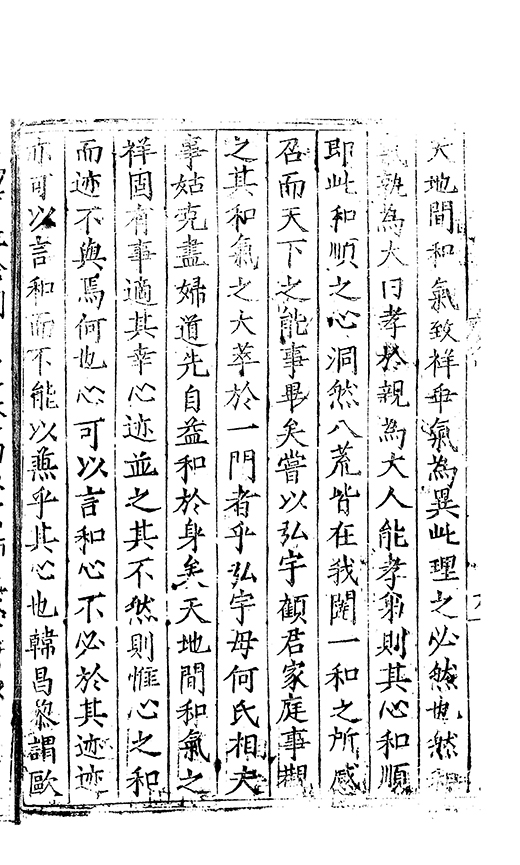 天地間和氣致祥乖氣為異此理之必然也然和
氣孰為大曰孝於親為大人能孝親則其心和順
即此和順之心洞然八荒皆在我闥一和之所感
召而天下之能事畢矣嘗以弘宇顧君家庭事觀
之其和氣之大萃於一門者乎弘宇母何氏相夫
事姑克盡婦道先自益和於身矣天地間和氣之
祥固有事適其幸心迹並之其不然則惟心之和
而迹不與焉何也心可以言和心不必於其迹迹
亦可以言和而不能以兼乎其心也韓昌黎謂歐